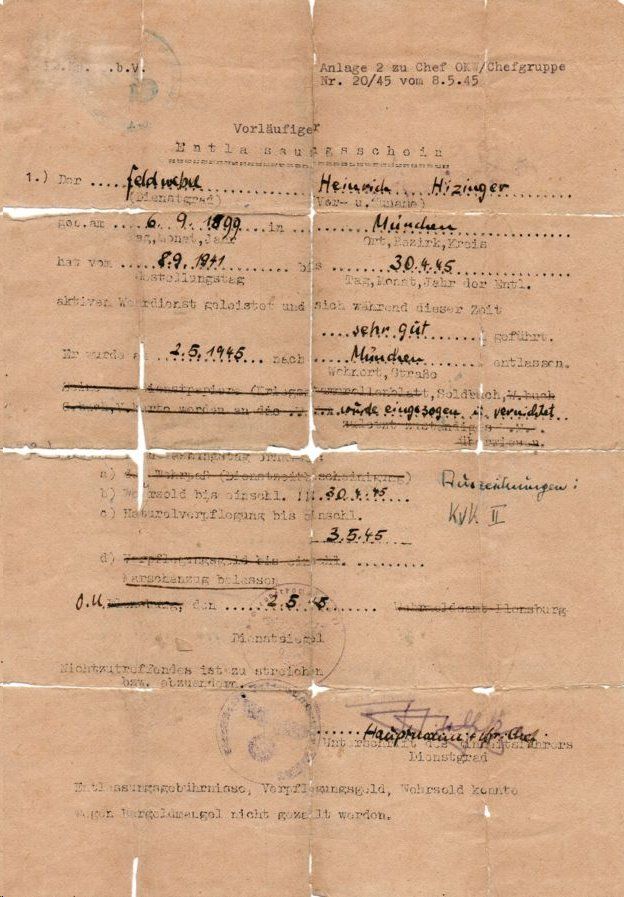 b.V.
Anlage 2 zu Chef OKW/Chefgruppe
Nr. 20/45 vom 8.5.45
Vorläufiger
Entlassungsschein
1.) Der ....Feldwebel.... Heinrich Hizinger
(Dienstgrad) (Vor- u. Zuname)
geb.am ...6. 9. 1899... in ....München....
Tag,Monat,Jahr Ort,Bezirk,Kreis
hat vom ...8.9.1941.... bis ....30.4.45
Gestellungstag Tag,Monat,Jahr der Entl.
aktiven Wehrdienst geleistet und sich während dieser Zeit
....sehr gut.... geführt.
Er wurde a 2.5.1945 ... nach ...München.... entlassen.
Wohnort,Straße
Soldbuch, W.buch
werden an das ... wurde eingezogen u. vernichtet
überwiesen.
a) Wehrpaß (Dienstzeitbescheinigung)
b) Wehrsold bis einschl. 30.4.45
Auszeichnungen:
KVK II
c) Naturalverpflegung bis einschl.
3.5.45
d) Verpflegungsgeld bis einschl. ........
Marschanzug belassen
O.U. den ....2.5.45.... Flensburg
Dienstsiegel
Nichtzutreffendes ist zu streichen
bzw. abzuändern.
Hauptmann u.
Unterschrift des Einheitsführers
Dienstgrad
Entlassungsgebührnisse, Verpflegungsgeld, Wehrsold konnte
wegen Bargeldmangel nicht gezahlt werden.